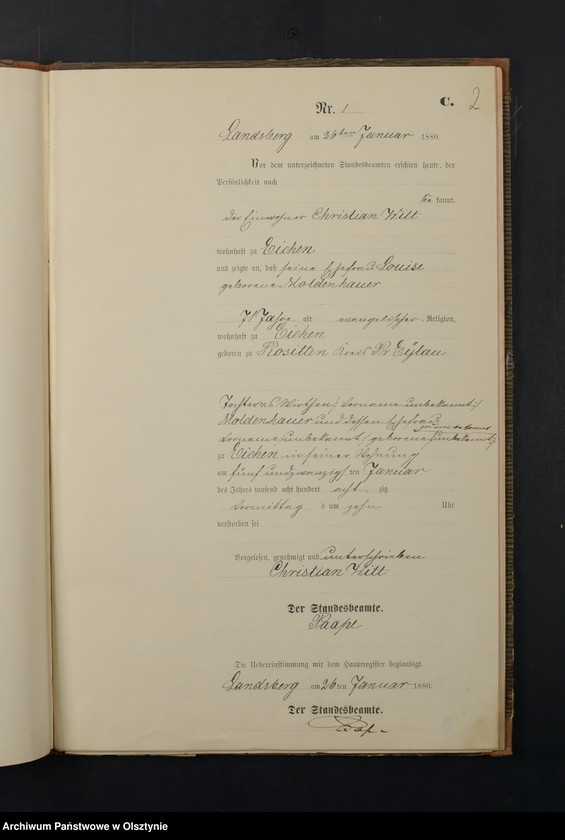 Nr. 1
C. 2
Landsberg am 26ten Januar 1880.
Vor dem unterzeichneten Standesbeamten erschien heute, der
Persönlichkeit nach
kannt,
der Einwohner Christian Witt
wohnhaft zu Eichen
und zeigte an, daß seine Ehefrau Louise
geborene Moldenhauer
Jahre alt evangelischer Religion,
wohnhaft zu Eichen
geboren zu Rositten Kreis Pr Eylau
Tochter des Wirthen (Vorname unbekannt)
Moldenhauer und dessen Ehefrau
Vorname unbekannt, geborene unbekannt
zu Eichen in seiner Wohnung
am fünf und zwanzigsten Januar
des Jahres tausend acht hundert acht zig
Vormittag s um zehn Uhr
verstorben sei
Vorgelesen, genehmigt und unterschrieben
Christian Witt
Der Standesbeamte.
Paape
Die Uebereinstimmung mit dem Hauptregister beglaubigt.
Landsberg am 26ten Januar 1880.
Der Standesbeamte.
Archiwum Państwowe w Olsztynie